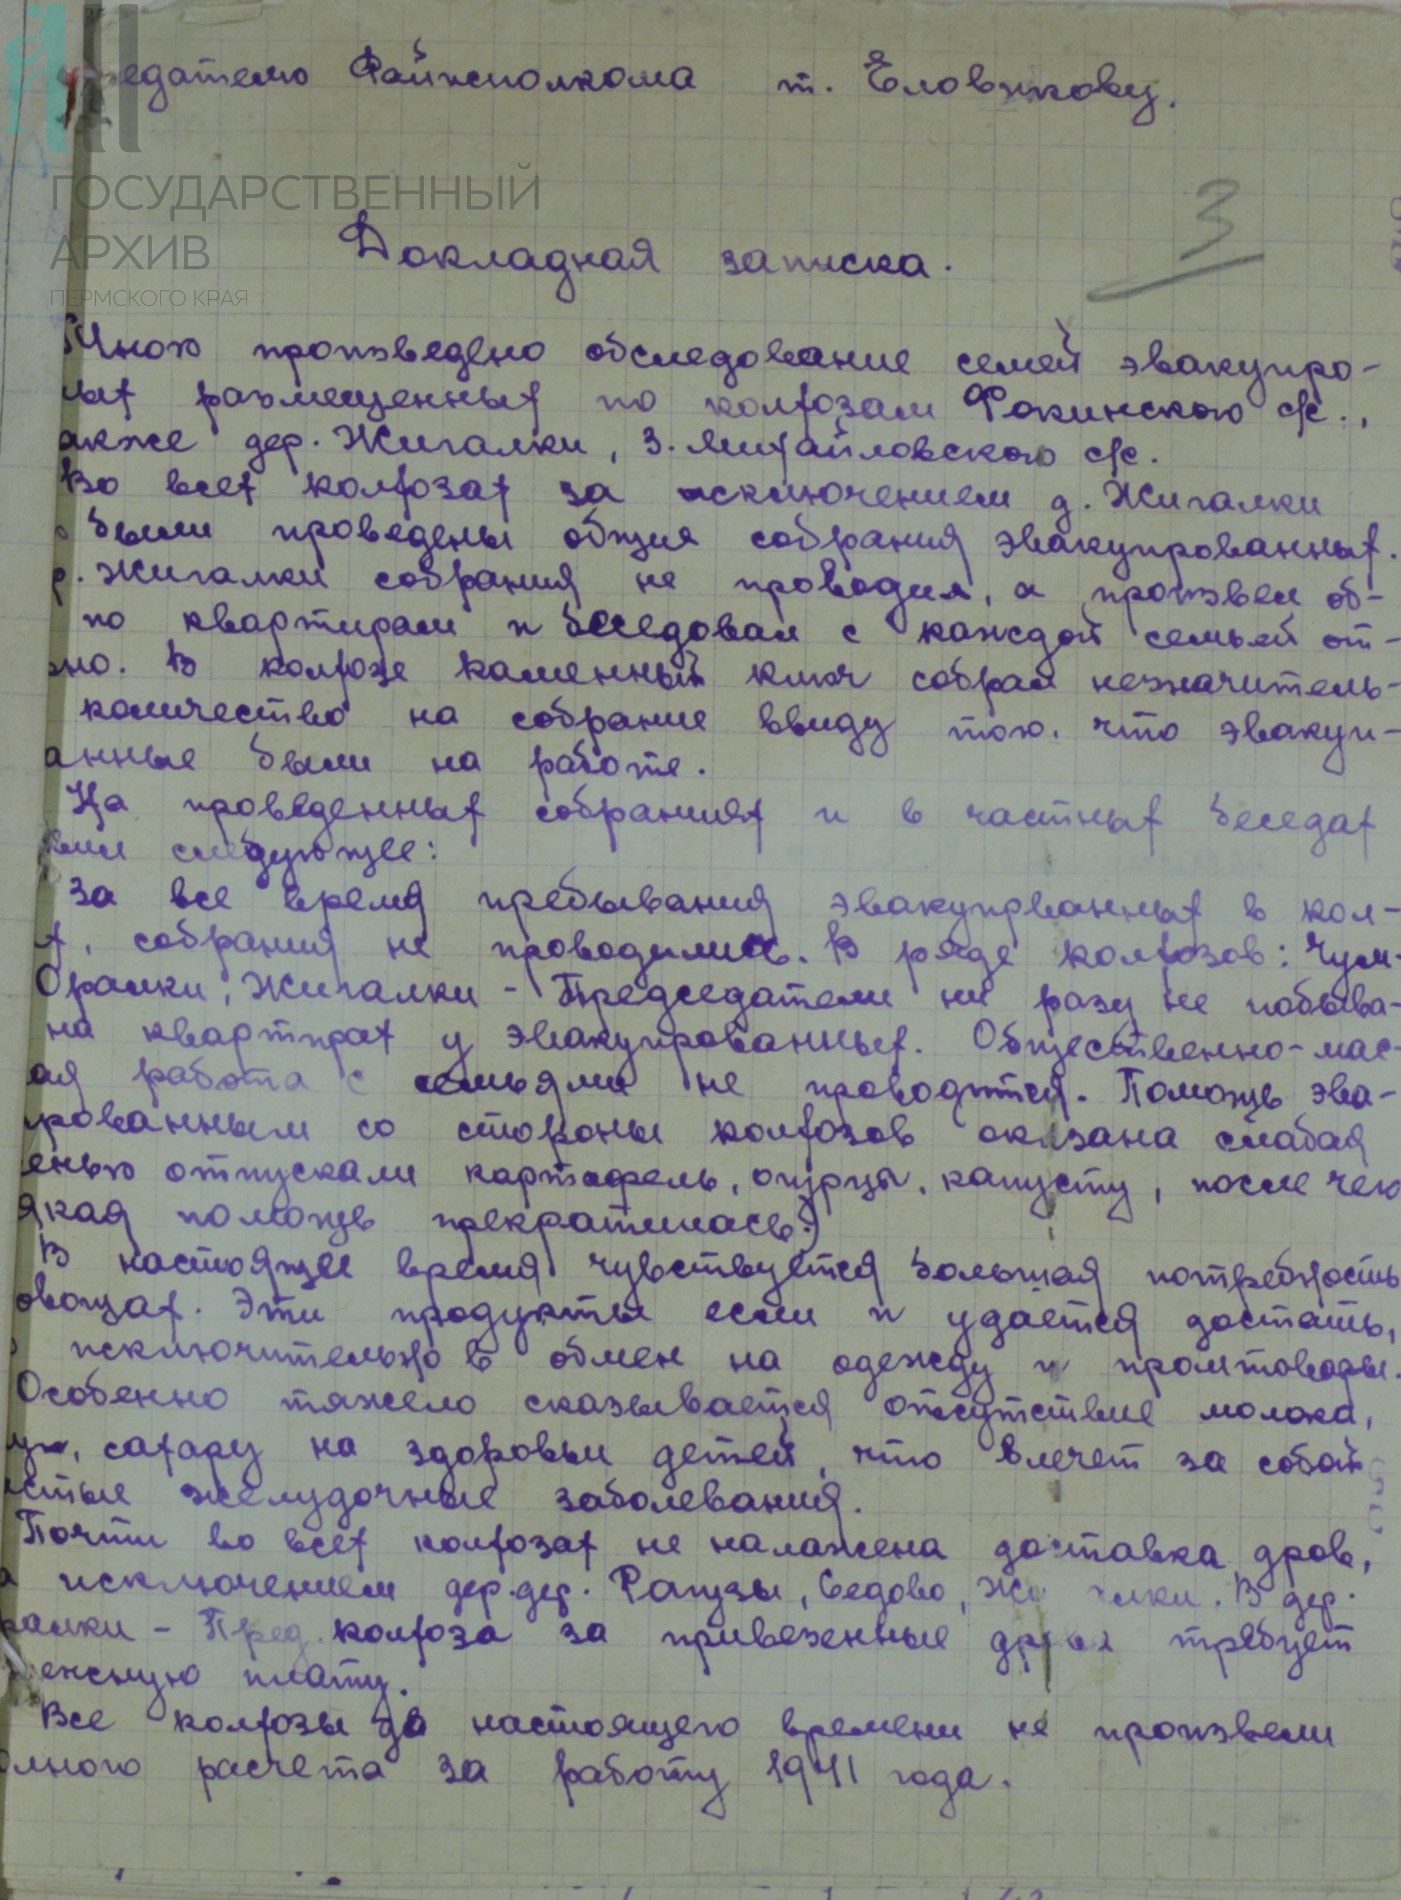 едателю Райисполкома т. Еловикову.
ГОСУДАРСТВЕННЫЙ
АРХИВ
ПЕРМСКОГО КРАЯ
3
Докладная записка.
Мною произведено обследование семей эвакуиро-
ных размещенных по колхозам Фокинского с/с.,
акже дер. Жигалки, З. Михайловского с/с.
Во всех колхозах за исключением д. Жигалки
были проведены общие собрания эвакуированных.
. Жигалки собрания не проводил, а произвел об-
по квартирам и беседовал с каждой семьей от-
но. В колхозе каменный ключ собрал незначитель-
количество на собрание ввиду того. что эвакуи-
анные были на работе.
На проведенных собраниях и в частных беседах
следующее:
За все время пребывания эвакуированных в кол-
х, собрания не проводились. В ряде колхозов: Чум-
Оралки, Жигалки - Председатели ни разу не побыва-
на квартирах у эвакуированных. Общественно-мас-
ая работа с семьями не проводится. Помощь эва-
рованным со стороны колхозов оказана слабая
енью отпускали картофель, огурцы, капусту, после чего
якая помощь прекратилась.)
В настоящее время чувствуется большая потребность
овощах. Эти продукты если и удается достать,
исключительно в обмен на одежду и промтовары.
Особенно тяжело сказывается отсутствие молока,
сахару на здоровьи детей, что влечет за собой
стые желудочные заболевания.
Почти во всех колхозах не налажена доставка дров,
а исключением дер.дер. Рагузы, Седово, Жи лки. В дер.
ралки - Пред. колхоза за привезенные дрова требует
енежную плату.
Все колхозы до настоящего времени не произвели
олного расчета за работу 1941 года.